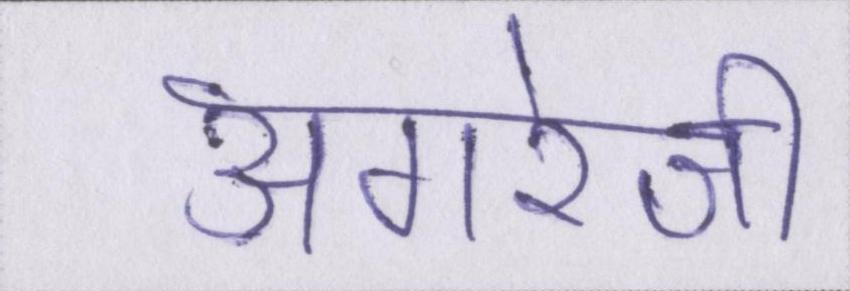 अगरेजी